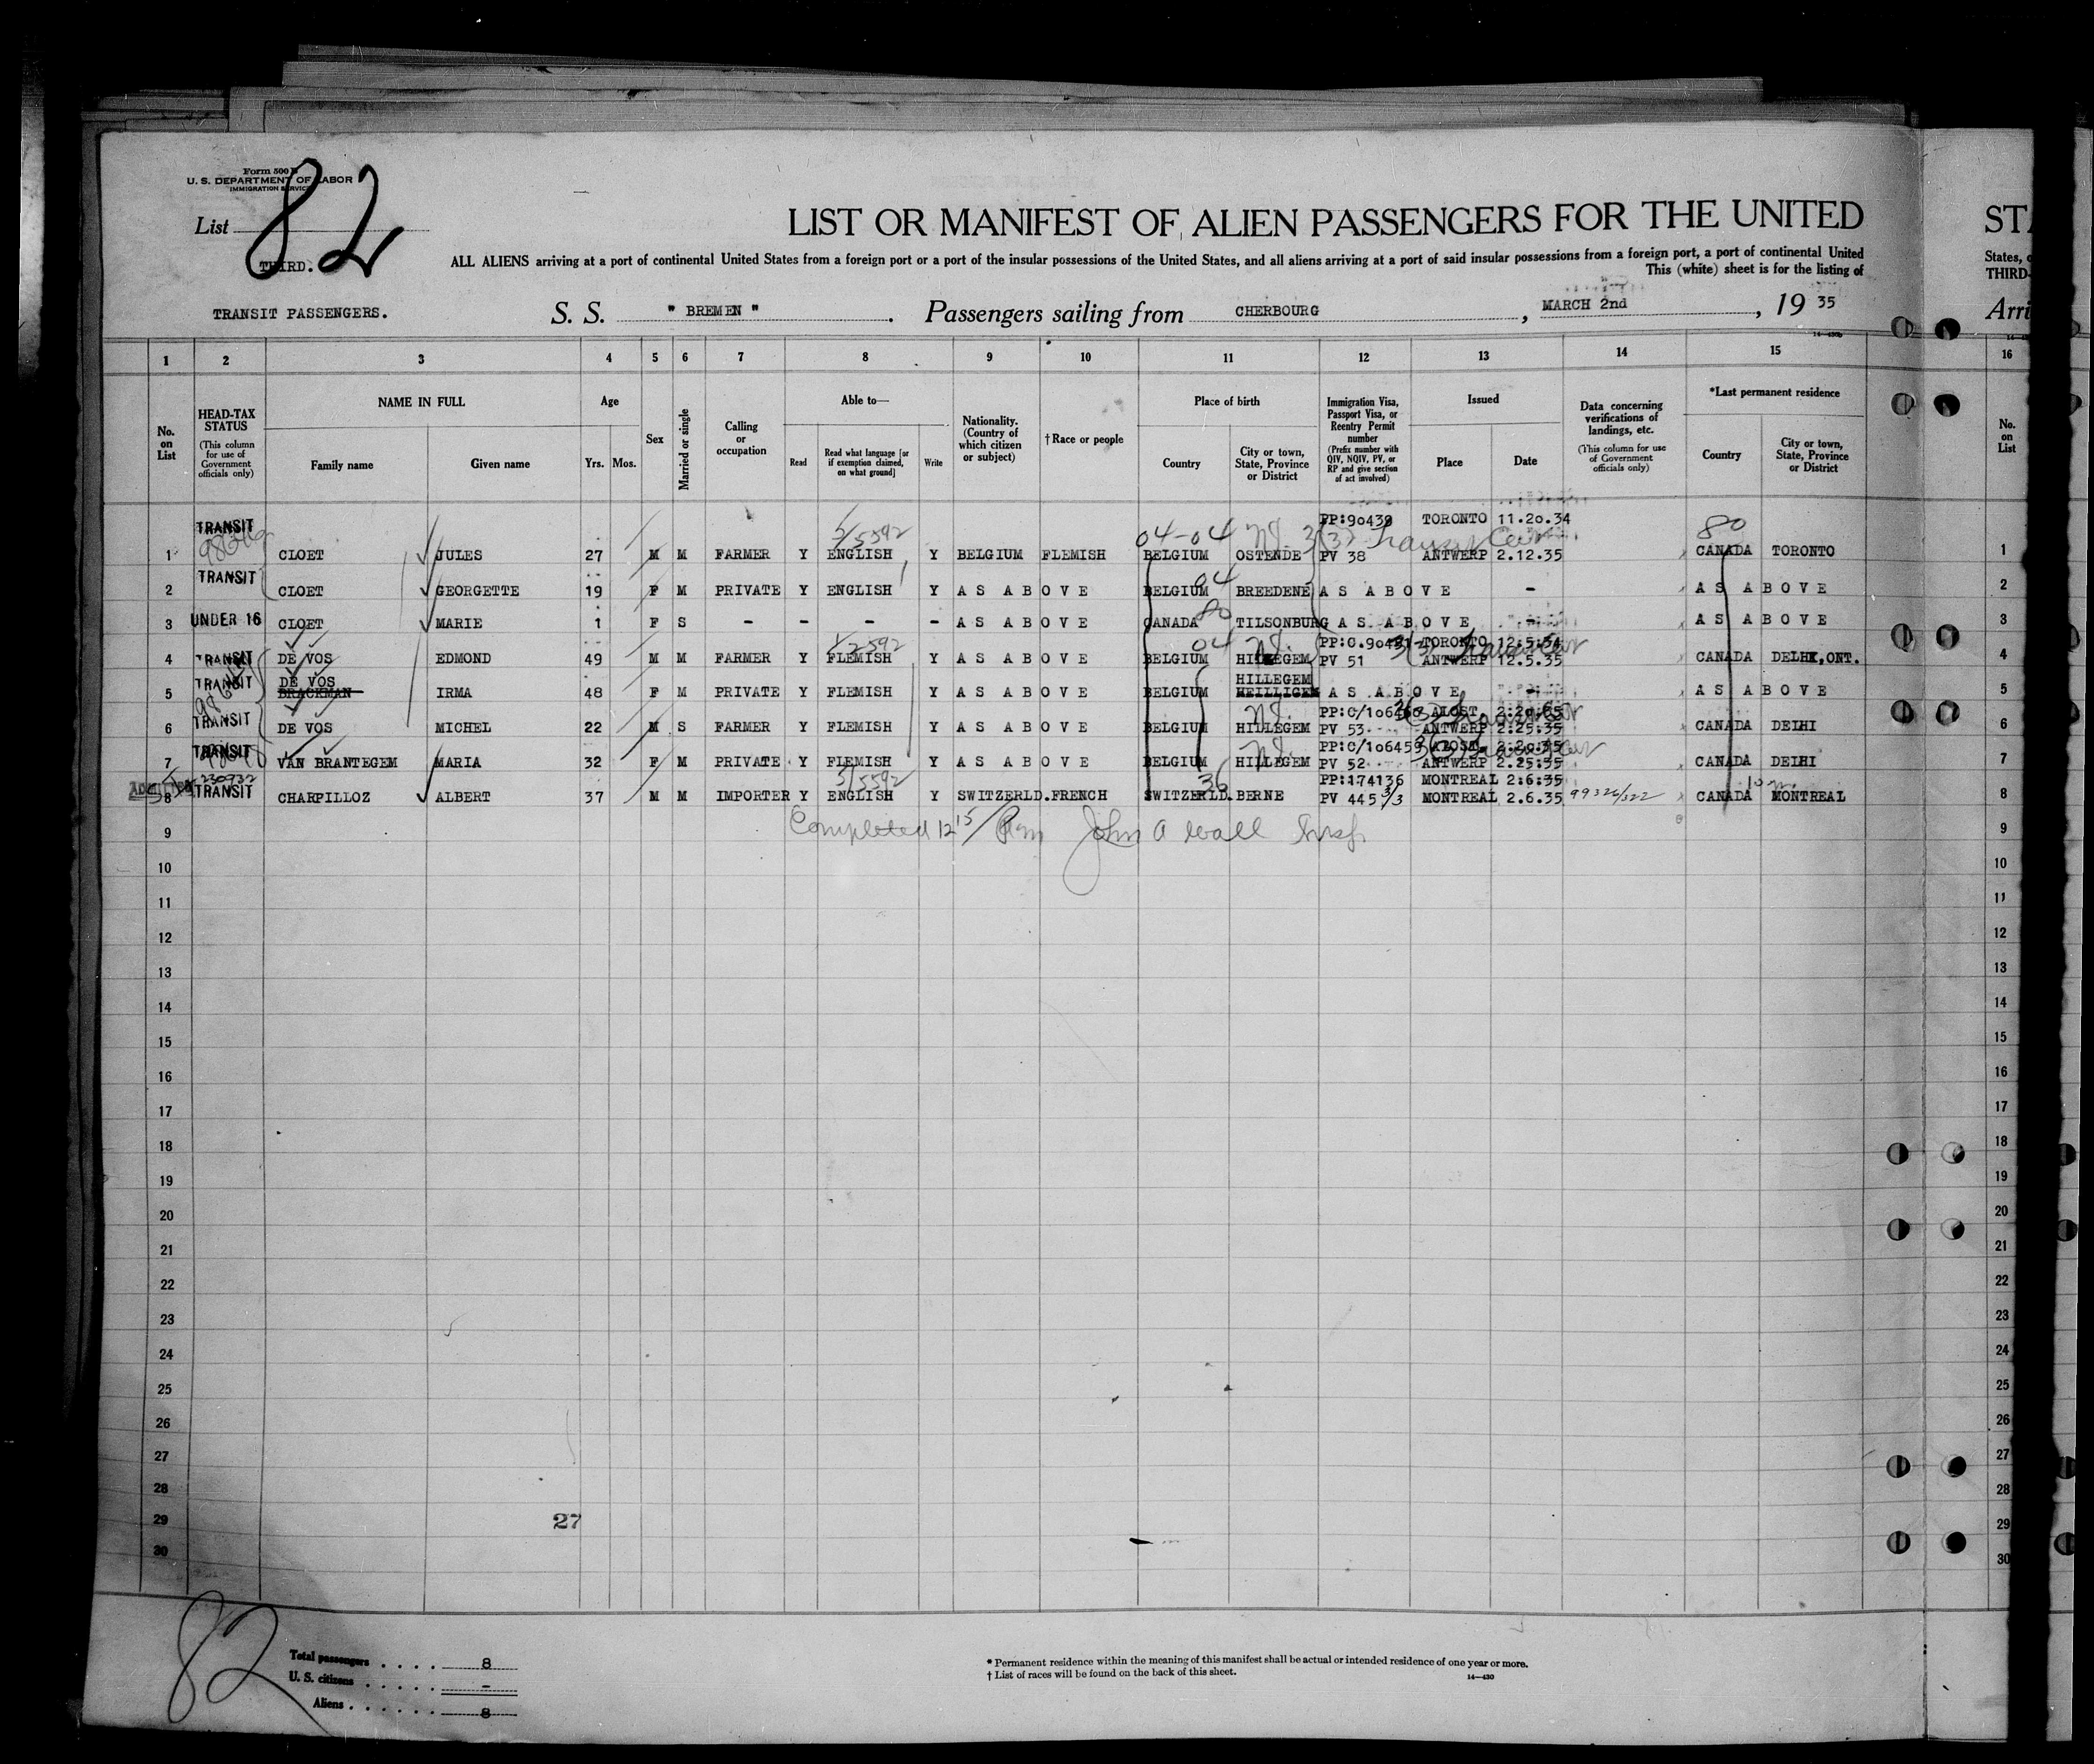 Form 500
U. S. DEPARTMENT OF LABOR
IMMIGRATION SERVICE
List 82
THIRD.
LIST OR MANIFEST OF ALIEN PASSENGERS FOR THE UNITED
STA
ALL ALIENS arriving at a port of continental United States from a foreign port or a port of the insular possessions of the United States, and all aliens arriving at a port of said insular possessions from a foreign port, a port of continental United
States, o
This (white) sheet is for the listing of
THIRD-
TRANSIT PASSENGERS. S. S. " BREMEN ". Passengers sailing from CHERBOURG, MARCH 2nd, 19 35
Arri
1 2 3 4 5 6 7 8 9 10 11 12 13 14 15 16
No. on List
HEAD-TAX STATUS (This column for use of Government officials only)
NAME IN FULL Family name Given name
Age Yrs. Mos.
Sex
Married or single
Calling or occupation
Able to— Read Read what language [or if exemption claimed, on what ground] Write
Nationality. (Country of which citizen or subject)
† Race or people
Place of birth Country City or town, State, Province or District
Immigration Visa, Passport Visa, or Reentry Permit number (Prefix number with QIV, NQIV, PV, or RP and give section of act involved)
Issued Place Date
Data concerning verifications of landings, etc. (This column for use of Government officials only)
*Last permanent residence Country City or town, State, Province or District
No. on List
TRANSIT 5/5592 04-04 PP:90439 TORONTO 11.20.34 80
1 CLOET JULES 27 M M FARMER Y ENGLISH Y BELGIUM FLEMISH BELGIUM OSTENDE PV 38 ANTWERP 2.12.35 CANADA TORONTO 1
TRANSIT 04
2 CLOET GEORGETTE 19 F M PRIVATE Y ENGLISH Y AS ABOVE BELGIUM BREEDENE AS ABOVE - AS ABOVE 2
80
3 UNDER 16 CLOET MARIE 1 F S - - - - AS ABOVE CANADA TILSONBURG AS ABOVE AS ABOVE 3
04 TORONTO 12.5.34
4 TRANSIT DE VOS EDMOND 49 M M FARMER Y FLEMISH Y AS ABOVE BELGIUM HILLEGEM PV 51 ANTWERP 12.5.35 CANADA DELHI,ONT. 4
TRANSIT DE VOS HILLEGEM
5 BRACKMAN IRMA 48 F M PRIVATE Y FLEMISH Y AS ABOVE BELGIUM HEILLIGEM AS ABOVE - AS ABOVE 5
TRANSIT ALOST
6 DE VOS MICHEL 22 M S FARMER Y FLEMISH Y AS ABOVE BELGIUM HILLEGEM PV 53 ANTWERP 2.25.35 CANADA DELHI 6
TRANSIT PP:C/106459 ALOST 2.20.35
7 VAN BRANTEGEM MARIA 32 F M PRIVATE Y FLEMISH Y AS ABOVE BELGIUM HILLEGEM PV 52 ANTWERP 2.25.35 CANADA DELHI 7
ADMITTED 230932 5/5592 36 PP:174136 MONTREAL 2.6.35
8 TRANSIT CHARPILLOZ ALBERT 37 M M IMPORTER Y ENGLISH Y SWITZERLD. FRENCH SWITZERLD. BERNE PV 445 3/3 MONTREAL 2.6.35 99326/322 CANADA MONTREAL 8
9 Completed 12 15/ Pm John A Wall Insp. 9
10 10
11 11
12 12
13 13
14 14
15 15
16 16
17 17
18 18
19 19
20 20
21 21
22 22
23 23
24 24
25 25
26 26
27 27
28 28
29 27 29
30 30
82
Total passengers . . . . 8
U. S. citizens . . . . . -
Aliens . . . . . . 8
* Permanent residence within the meaning of this manifest shall be actual or intended residence of one year or more.
† List of races will be found on the back of this sheet.
14—430